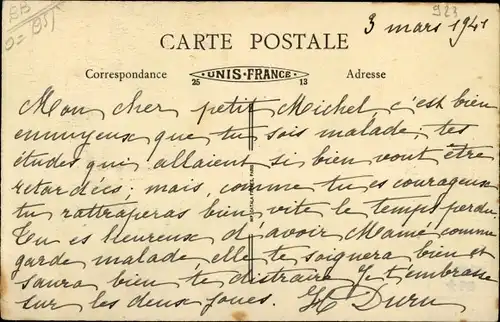 923
3 mars 1941
CARTE POSTALE
Correspondance
UNIS-FRANCE
25 13
Adresse
Mon cher petit Michel c'est bien
ennuyeux que tu sois malade; tes
études qui allaient si bien vont être
retardées; mais, comme tu es courageux
tu rattraperas bien vite le temps perdu
Tu es heureux d'avoir Mamé comme
garde malade, elle te soignera bien et
saura bien te distraire Je t'embrasse
sur les deux joues. H Duru